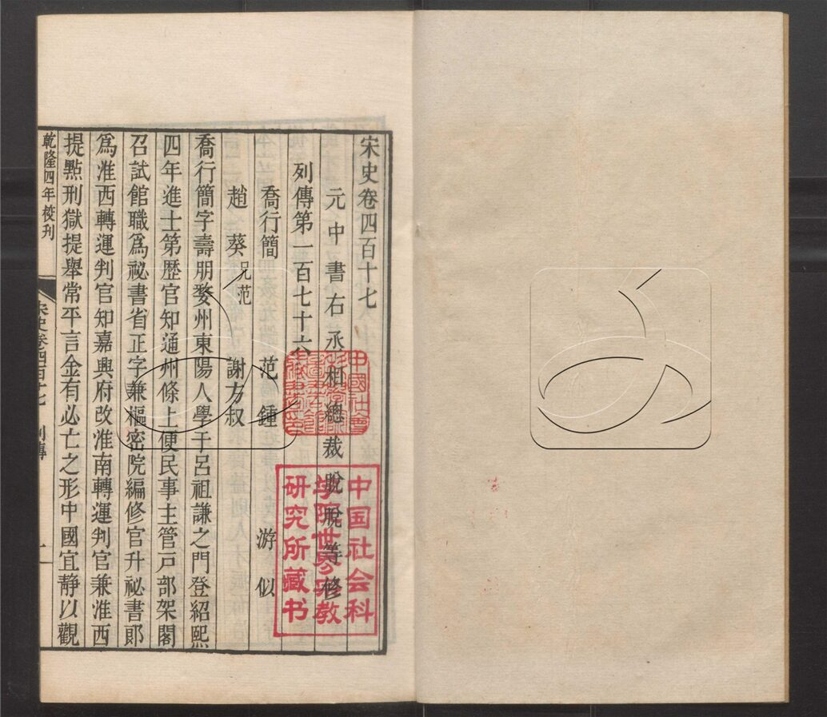 宋史卷四百十七
元中書右丞相總裁脫脫等修
列傳第一百七十六
喬行簡 范鍾 游似
趙葵兄范 謝方叔
喬行簡字壽朋婺州東陽人學于呂祖謙之門登紹熙
四年進士第歷官知通州條上便民事主管戸部架閣
召試館職爲祕書省正字兼樞密院編修官升祕書郞
爲淮西轉運判官知嘉興府改淮南轉運判官兼淮西
提點刑獄提舉常平言金有必亡之形中國宜靜以觀
乾隆四年校刋
宋史卷四百十七 列傳 一
中国社会科
学院世界宗教
研究所藏书